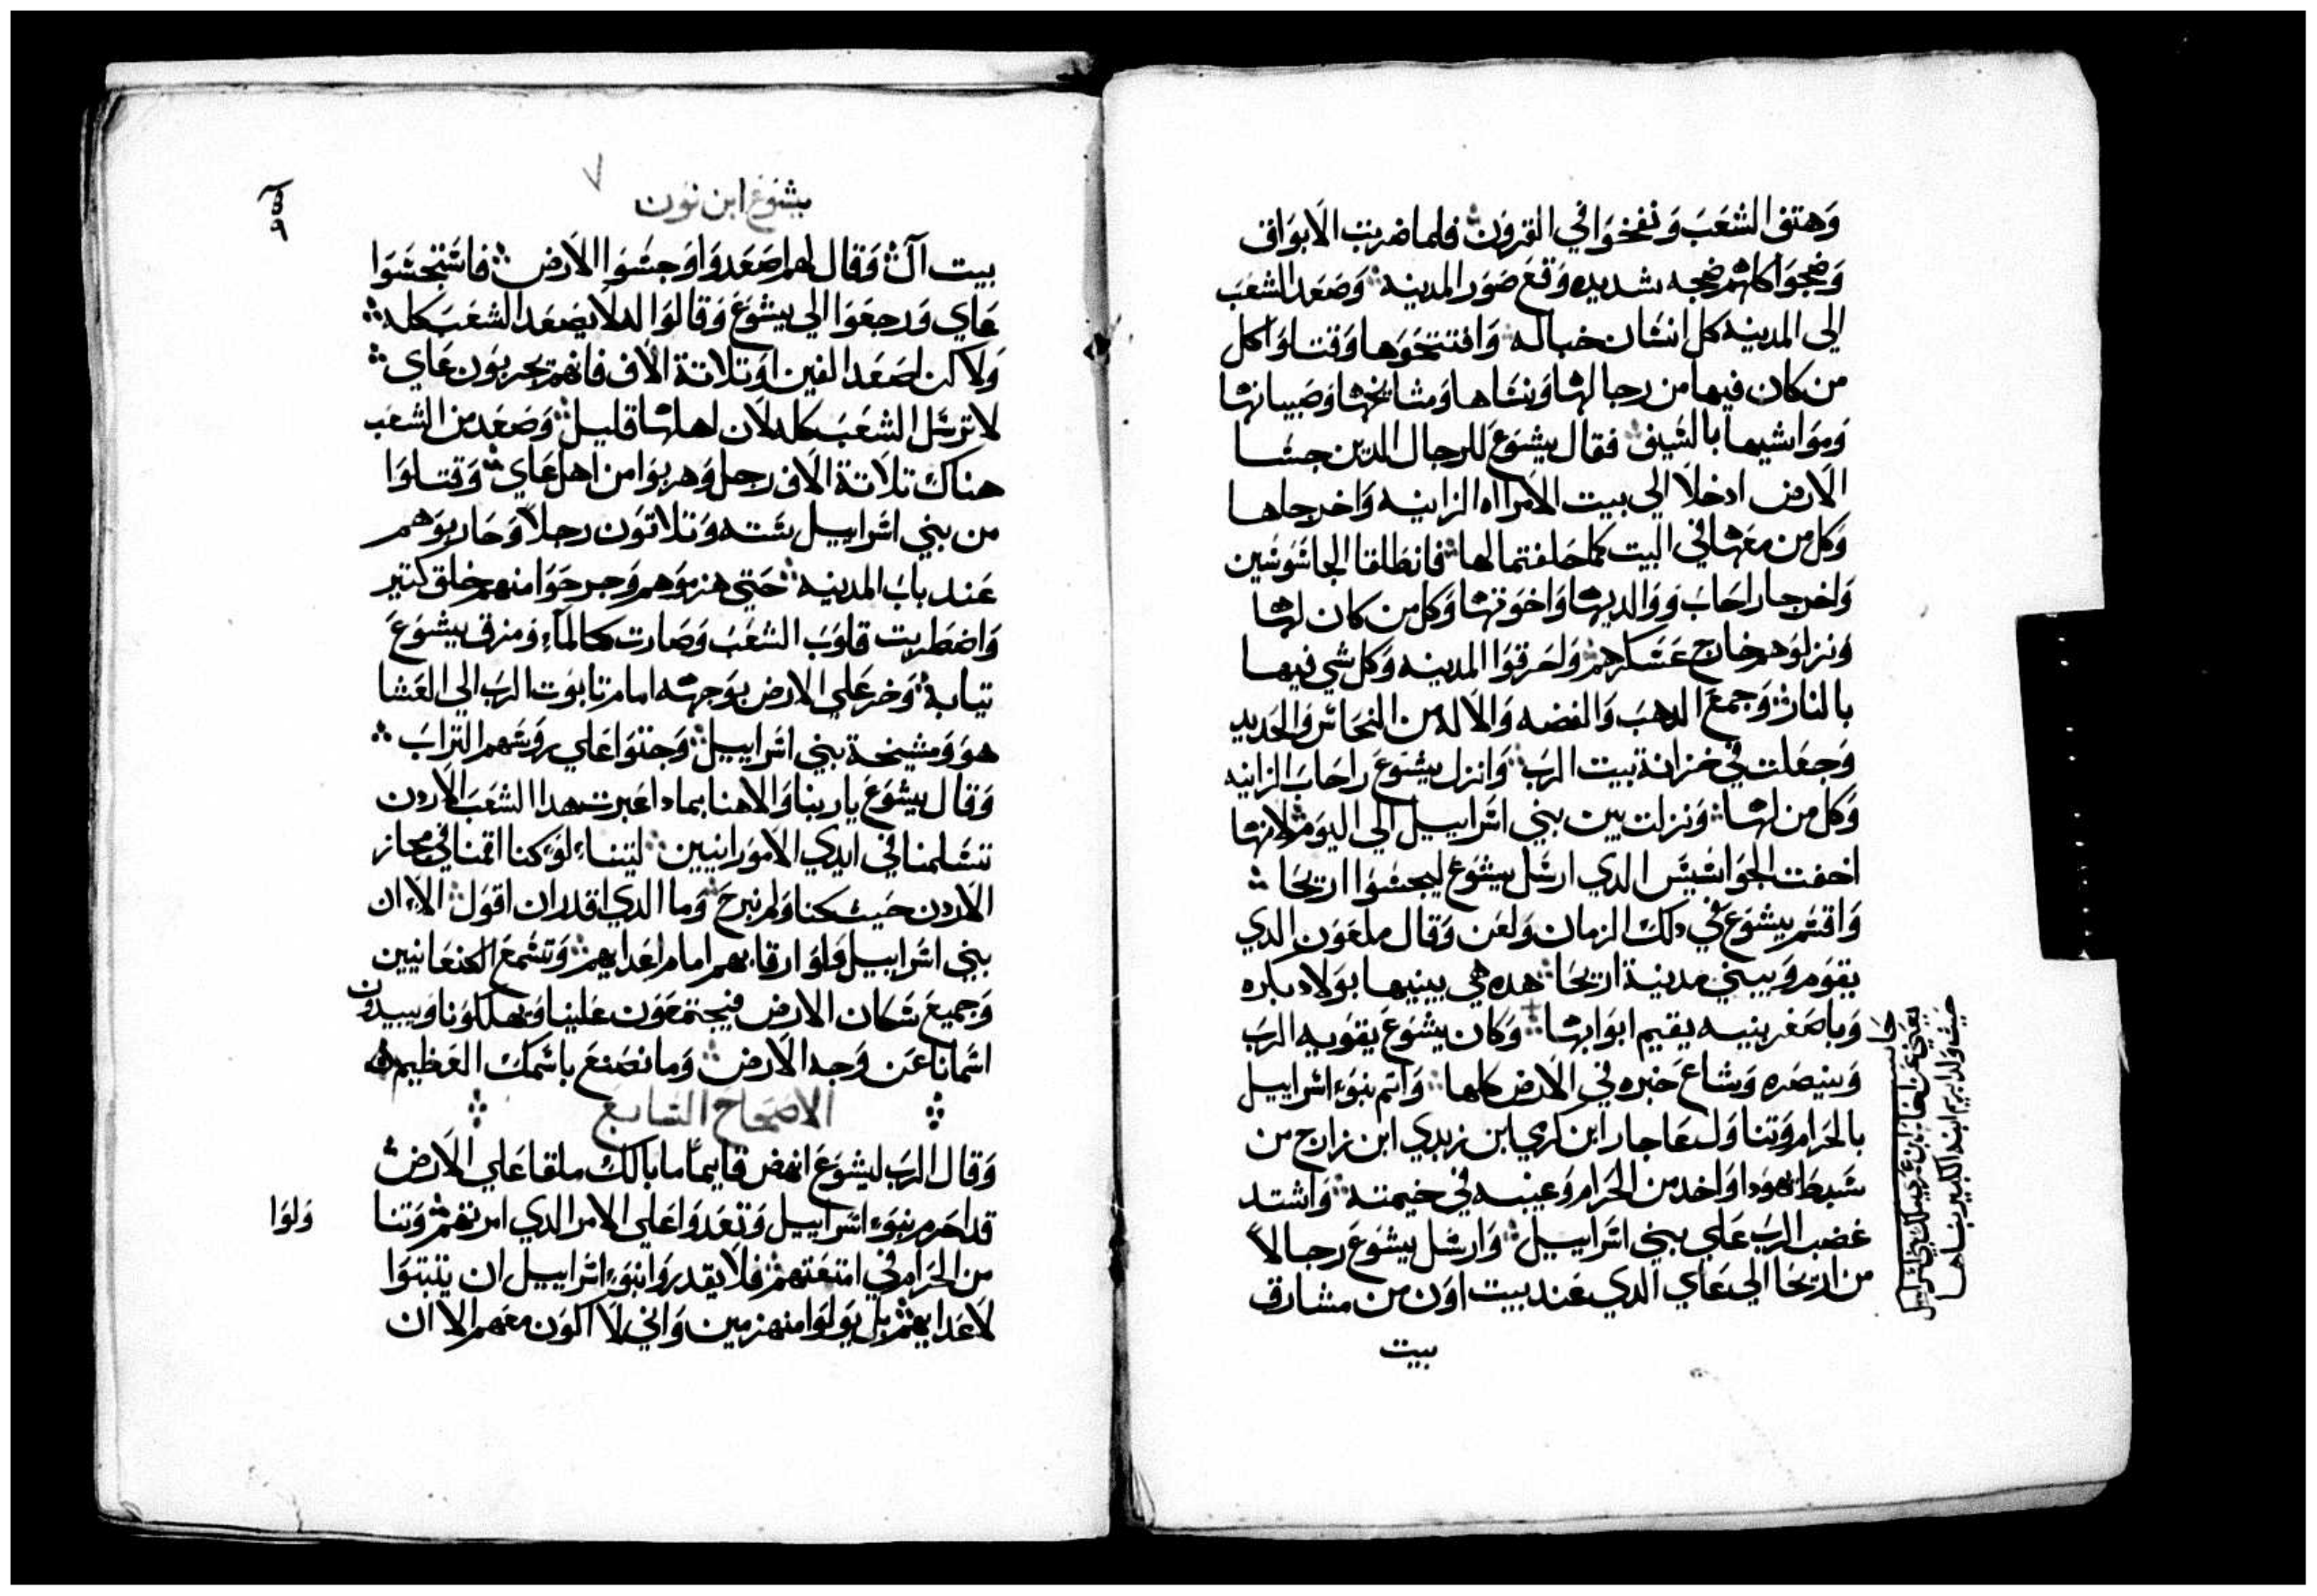 وهتف الشعب ونفخوا في القرون فلما ضربت الابواق
وضجوا كلهم ضجه شديده وقع صور المدينه وصعد الشعب
الي المدينه كل انسان حباله وافتتحوها وقتلوا كل
من كان فيها من رجالها ونساها ومشايخها وصبيانها
ومواشيها بالسيف فقال يشوع للرجال الدين جسا
الارض ادخلا الي بيت الامراه الزانيه واخرجاها
وكل من معها في البيت كما حلفتما لها فانطلقا الجاسوسين
واخرجا راحاب ووالديها واخوتها وكل من كان لها
ونزلوهم خارج عسكرهم واحرقوا المدينه وكل شي فيها
بالنار وجمع الدهب والفضه والاله من النحاس والحديد
وجعلت في خزانة بيت الرب وانزل يشوع راحاب الزانيه
وكل من لها ونزلت بين بني اسراييل الي اليوم لانها
اخفت الجواسيس الدي ارسل يشوع ليجسوا اريحا
واقسم يشوع في دلك الزمان ولعن وقال ملعون الدي
يقوم ويبني مدينة اريحا هده هي يبنيها بولاد بكره
وباصغر بنيه يقيم ابوابها وكان يشوع يقويه الرب
وينصره وشاع خبره في الارض كلها واتم بنوء اسراييل
بالحرام وتناول عاجار ابن كري ابن زبدي ابن زارح من
سبط يهودا واخد من الحرام وعينه في خيمته واشتد
غضب الرب علي بني اسراييل وارسل يشوع رجالاً
من اريحا الي عاي الدي عند بيت اون من مشارق
بيت
حيث ولد ابريم ابنه الكبير بناها
يشوع ابن نون
بيت آل وقال لهم اصعدوا وجسوا الارض فاستجسوا
عاي ورجعوا الي يشوع وقالوا له لا يصعد الشعب كله
ولاكن اصعد الفين او تلاتة الاف فانهم يحربون عاي
لا ترسل الشعب كله لان اهلها قليل وصعد من الشعب
هناك تلاتة الاف رجل وهربوا من اهل عاي وقتلوا
من بني اسراييل سته وتلاتون رجلاً وحاربوهم
عند باب المدينه حتي هزموهم وجرحوا منهم خلق كتير
واضطربت قلوب الشعب وصارت كالمآء ومزق يشوع
تيابه وخر علي الارض بوجهه امام تابوت الرب الي العشا
هو ومشيخة بني اسراييل وحتوا علي روسهم التراب
وقال يشوع يا ربنا والاهنا بمادا عبرت هدا الشعب الاردن
تتسلمنا في ايدي الامورانيين ليتناء لو كنا اقمنا في مجاز
الاردن حيث كنا ولم نبرح وما الدي اقدر ان اقول الاءان
بني اسراييل ولوا رقابهم امام اعدايهم وتسمع الكنعانيين
وجميع سكان الارض فيجتمعون علينا ويهلكونا ويبيدون
اسمانا عن وجه الارض وما نصنع باسمك العظيم
الاصحاح السابع
وقال الرب ليشوع انهض قايماً ما بالك ملقا علي الارض
قد احرم بنوء اسراييل وتعدوا علي الامر الدي امرتهم وتنا
ولوا
من الحرام في امتعتهم فلا يقدروا بنوء اسراييل ان يتبتوا
لاعدايهم بل يولوا منهزمين واني لا اكون معهم الا ان